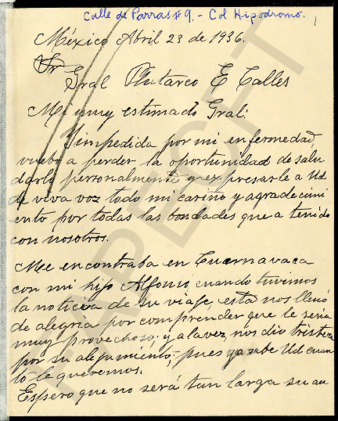 Calle de Parras #9. - Col Hipodromo.
México Abril 23 de 1936.
Sr Gral Plutarco E Calles
Mi muy estimado Gral:
Impedida por mi enfermedad
vuelvo a perder la oportunidad de salu
darlo personalmente y expresarle a Ud
de viva voz todo mi cariño y agradecimi
ento por todas las bondades que a tenido
con nosotros.
Me encontraba en Cuernavaca
con mi hijo Alfonso, cuando tuvimos
la noticia de su viaje, esta nos llenó
de alegria por comprender que le seria
muy provechoso, y a la vez nos dio tristeza
por su alejamiento,- pues ya sabe Ud cuan
to le queremos.
Espero que no será tan larga su au